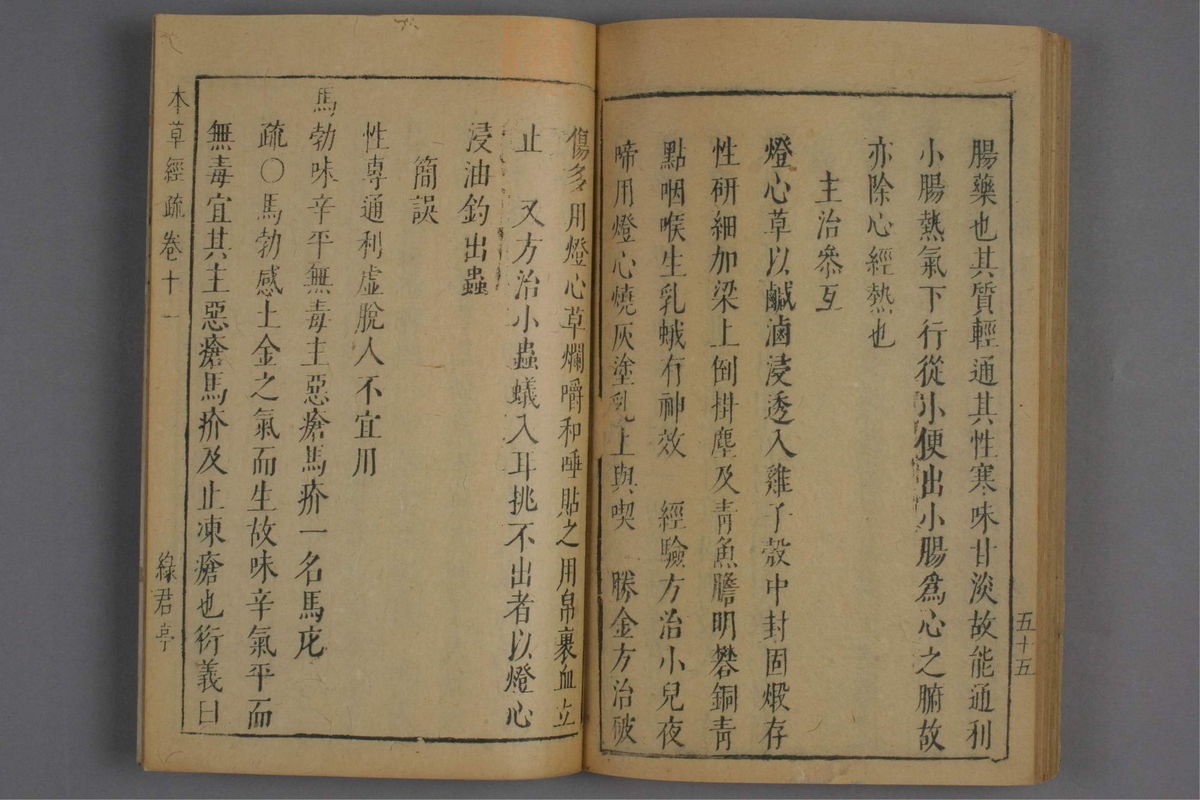 腸藥也其質輕通其性寒味甘淡故能通利
小腸熱氣下行從小便出小腸爲心之腑故
亦除心經熱也
主治參互
燈心草以鹹滷浸透入雞子殼中封固煅存
性研細加梁上倒掛塵及青魚膽明礬銅青
點咽喉生乳蛾有神效 經驗方治小兒夜
啼用燈心燒灰塗乳上與喫 勝金方治破
五十五
傷多用燈心草爛嚼和唾貼之用帛裹血立
止 又方治小蟲蟻入耳挑不出者以燈心
浸油釣出蟲
簡誤
性專通利虛脫人不宜用
馬勃味辛平無毒主惡瘡馬疥一名馬庀
疏〇馬勃感土金之氣而生故味辛氣平而
無毒宜其主惡瘡馬疥及止凍瘡也衍義曰
本草經疏 卷十一
綠君亭